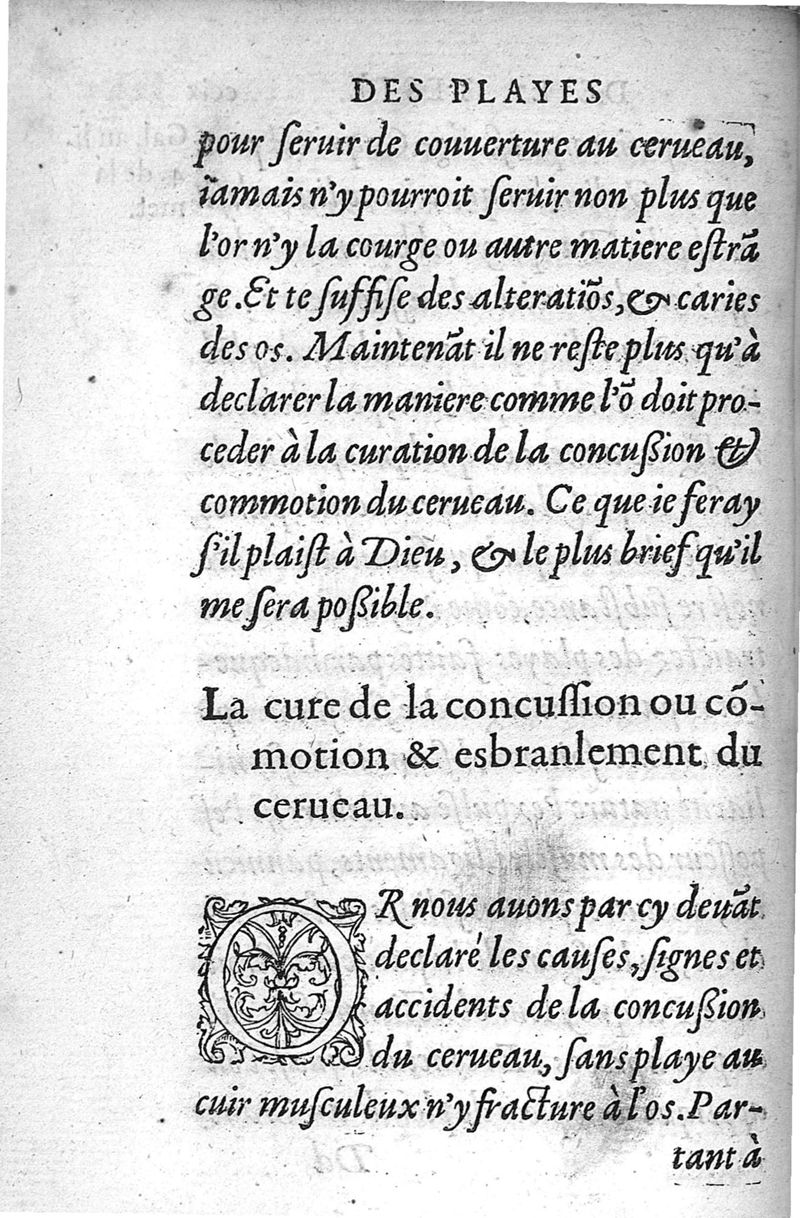 DES PLAYES
pour ſeruir de couuerture au cerueau,
iamais n'y pourroit ſeruir non plus que
l'or n'y la courge ou autre matiere eſtrā
ge. Et te ſuffiſe des alteratiõs, & caries
des os. Maintenāt il ne reſte plus qu'à
declarer la maniere comme l'õ doit pro-
ceder à la curation de la concußion &
commotion du cerueau. Ce que ie feray
s'il plaiſt à Dieu, & le plus brief qu'il
me ſera poßible.
La cure de la concuſſion ou cõ-
motion & esbranlement du
cerueau.
OR nous auons par cy deuāt
declaré les cauſes, ſignes et
accidents de la concußion
du cerueau, ſans playe au
cuir muſculeux n'y fracture à l'os. Par-
tant à